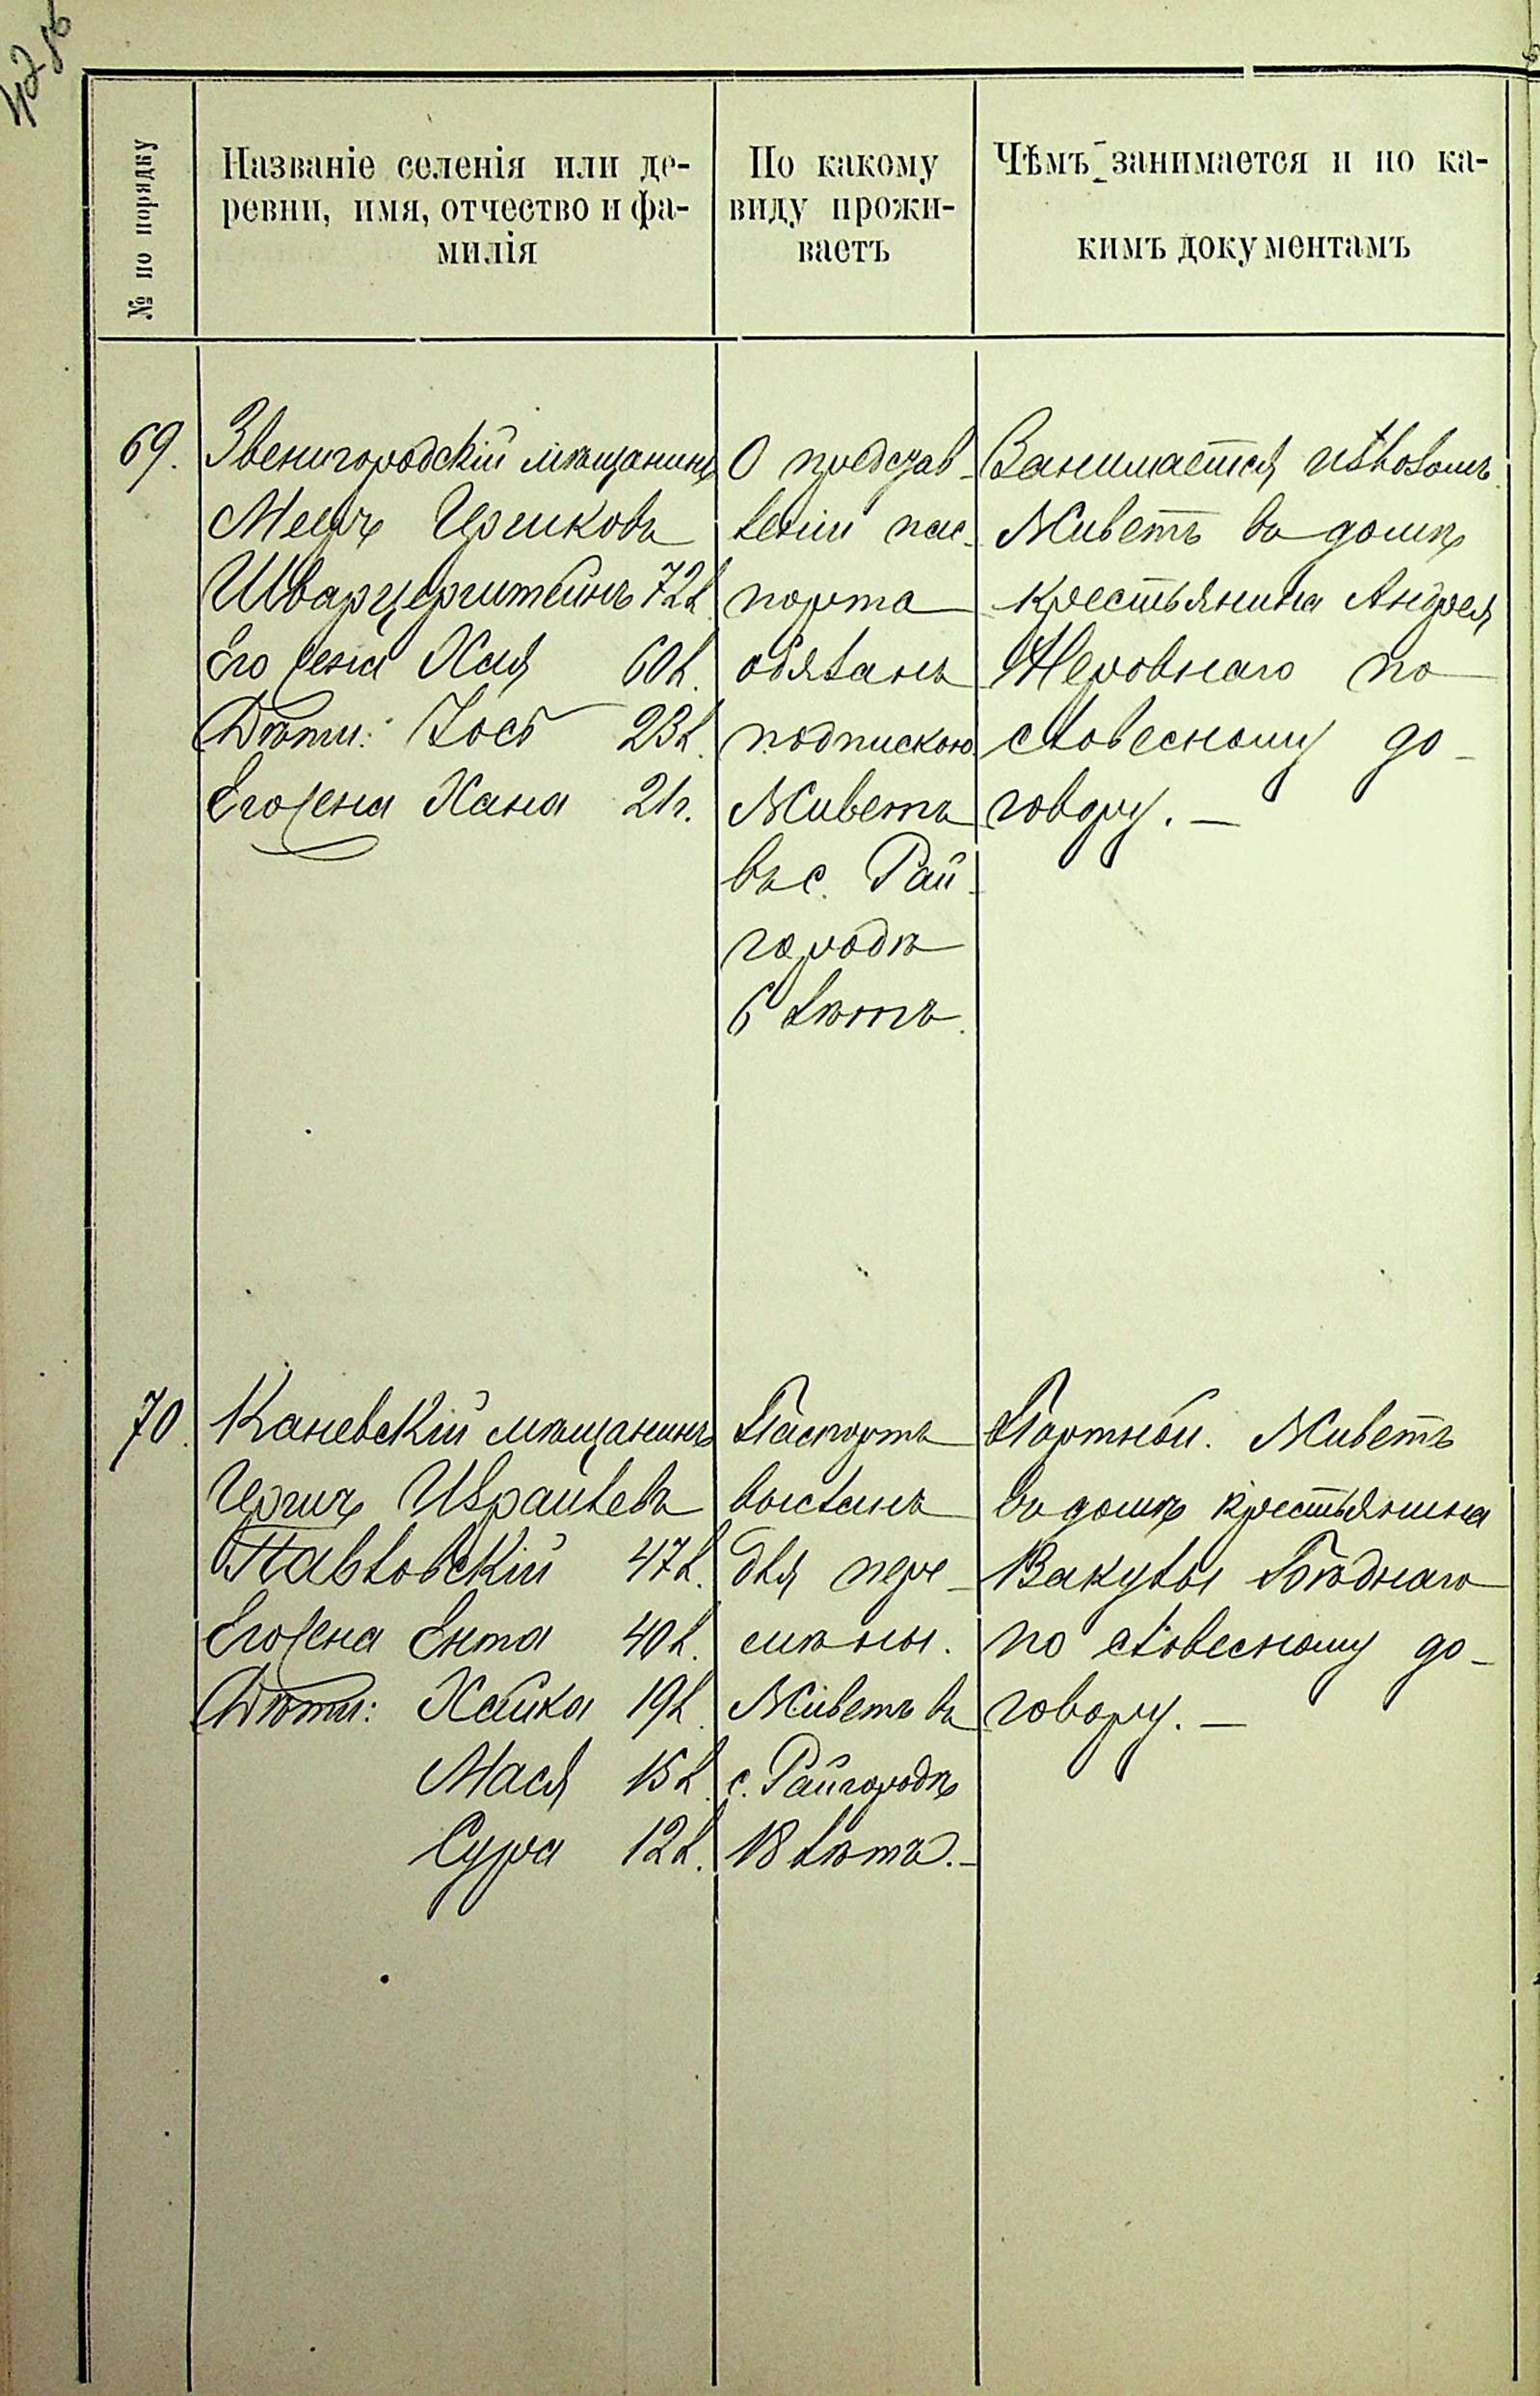 № по порядку
Названіе селенія или де-
ревни, имя, отчество и фа-
милія
По какому
виду прожи-
ваетъ
Чѣмъ занимается и по ка-
кимъ документамъ
69.
Звенигородскій мѣщанинъ
Мееръ Ицшковъ
72 л
Его жена Хая 60 л.
Дѣти: Іось 23 л.
Его жена Хана 21 г.
О представ-
леніи пас-
порта
обязанъ
подпискою
Живетъ
въ с. Рай-
городкѣ
6 лѣтъ.
Занимается извозомъ.
Живетъ въ домѣ
крестьянина Андрея
по
словесному до-
говору. —
70.
Каневскій мѣщанинъ
Израилевъ
Павловскій 47 л.
Его жена Ента 40 л.
Дѣти: Хайка 19 л.
Мася 15 л.
Сура 12 л.
Паспортъ
высланъ
для пере-
мѣны.
Живетъ въ
с. Райгородкѣ
18 лѣтъ. —
Портной. Живетъ
въ домѣ крестьянина
Вакулы
по словесному до-
говору. —